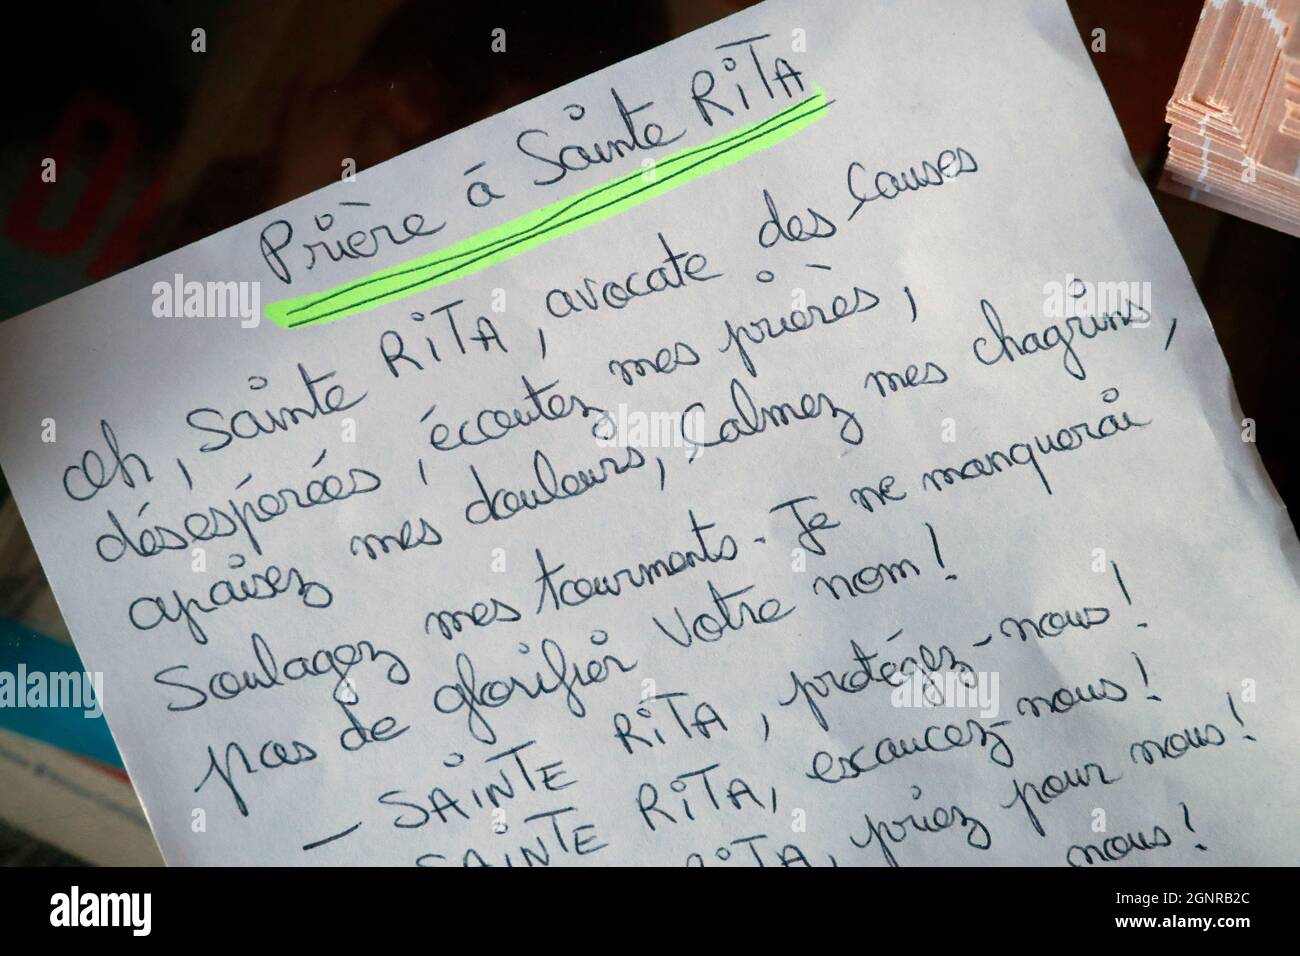 Prière à Sainte RiTA
Oh, Sainte RiTA, avocate des Causes
désespérées, écoutez mes prières,
apaisez mes douleurs, Calmez mes chagrins,
Soulagez mes tourments. Je ne manquerai
pas de glorifier Votre nom!
— SAiNTE RiTA, protégez-nous!
SAiNTE RiTA, exaucez-nous!
RiTA, priez pour nous!
nous!
alamy
Image ID: 2GNRB2C
www.alamy.com